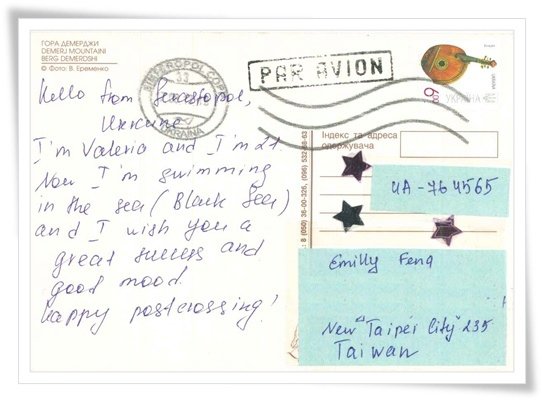 ГОРА ДЕМЕРДЖИ
DEMERJ MOUNTAINI
BERG DEMERDSHI
© Фото: В. Еременко
Hello from Sevastopol,
Ukraine
I'm Valeria and I'm 21
Now I'm swimming
in the sea (Black Sea)
and I wish you a
great success and
good mood.
happy postcrossing!
SIMFEROPOL
33
UKRAINA
PAR AVION
УКРАЇНА
Індекс та адреса
одержувача
UA-764565
Emilly Feng
New Taipei City 235
Taiwan